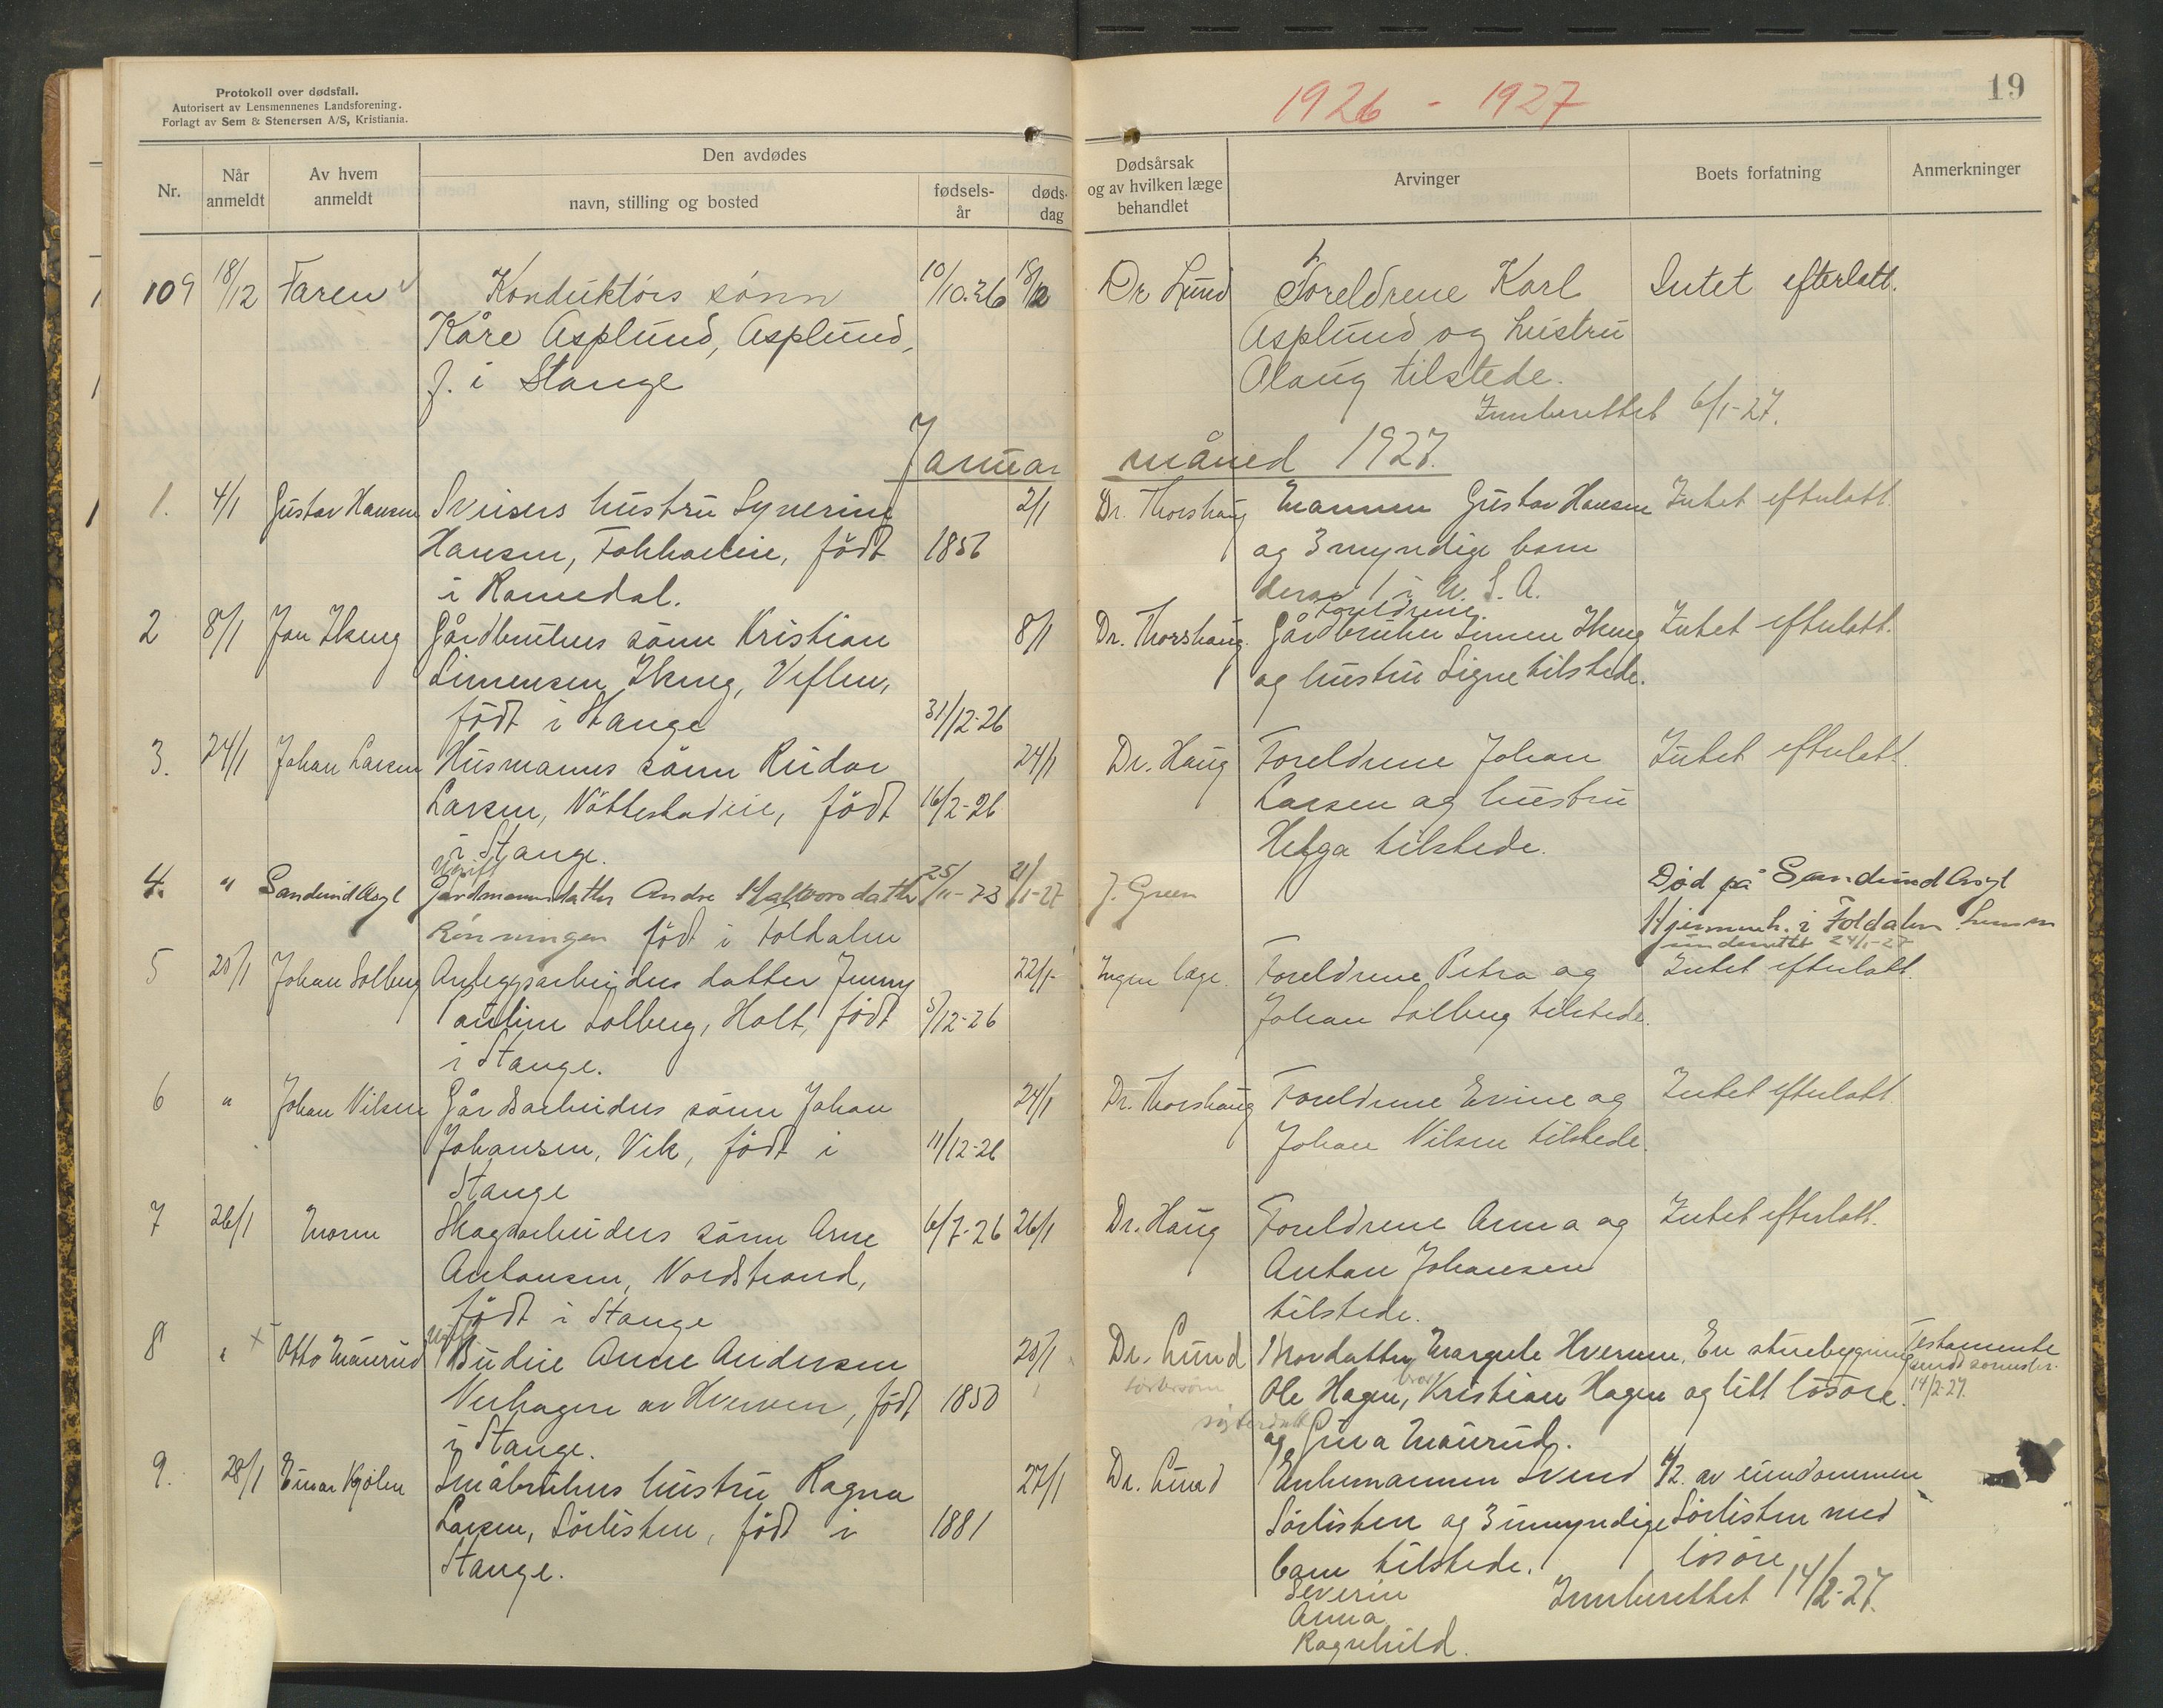 Protokoll over dødsfall.
Autorisert av Lensmennenes Landsforening.
Forlagt av Sem & Stenersen A/S, Kristiania.
Nr.
Når anmeldt
Av hvem anmeldt
Den avdødes
navn, stilling og bosted
fødsels-år
døds-dag
1926 - 1927
19
Dødsårsak og av hvilken læge behandlet
Arvinger
Boets forfatning
Anmerkninger
109 18/12 Faren Konduktørs sønn 10/10.26 18/12 Dr Lund Foreldrene Karl Intet efterlatt.
Kåre Asplund, Asplund, Asplund og hustru
f. i Stange Olaug tilstede.
Innberettet 6/1-27.
Januar måned 1927.
1. 4/1 Gustav Hansen Sveisers hustru Synerine 2/1 Dr. Thorshaug Mannen Gustav Hansen Intet efterlatt.
Hansen, født 1856 og 3 myndige barn
i Romedal. derav 1 i U. S. A.
Foreldrene
2 8/1 Jon Gårdbrukers sønn Kristian 8/1 Dr. Thorshaug. Gårdbruker Simen Intet efterlatt.
Simensen Veflen, og hustru Signe tilstede.
født i Stange 31/12-26
3. 24/1 Johan Larsen Husmanns sønn Reidar 24/1 Dr. Haug Foreldrene Johan Intet efterlatt.
Larsen, født 16/2-26 Larsen og hustru
i Stange. Helga tilstede.
Ugift
4. " Sandund Asyl Gårdmannsdatter Andre Halvorsdatter 25/11-73 21/1-27 J. Green Død på Sandund Asyl
Rønningen født i Foldalen Hjemmeh. i Foldalen
underrettet 24/1-27
5 25/1 Johan Solberg Anleggsarbeiders datter Jenny 22/1- Ingen læge. Foreldrene Petra og Intet efterlatt.
Pauline Solberg, Holt, født 5/12-26 Johan Solberg tilstede.
i Stange.
6 " Johan Nilsen Gårdsarbeiders sønn Johan 24/1 Dr. Thorshaug Foreldrene Evine og Intet efterlatt.
Johansen, Vik, født i 11/12-26 Johan Nilsen tilstede.
Stange
7 26/1 Moren Skogsarbeiders sønn Arne 6/7-26 26/1 Dr. Haug Foreldrene Anna og Intet efterlatt.
Antonsen, Nordstrand, Anton Johansen
født i Stange tilstede.
Ugift
8 " x Otto Maurud Budeie Anne Andersen 25/1 Dr. Lund Brordatter Margit Hverven, En stuebygning Testamente
Verhagen av Hverven, født 1850 Ole Hagen, bror Kristian Hagen og litt løsøre. 14/2-27.
i Stange. søsterdatter og Gina Maurud.
9. 28/1 Einar Kjølen Småbrukers hustru Ragna 27/1 Dr. Lund Enkemannen Svend 1/2 av eiendommen
Larsen, Sørlisten, født i 1881 Sørlisten og 3 umyndige Sørlisten med
Stange. barn tilstede. løsøre
Severin
Anna
Ragnhild.
Innberettet 14/2-27.